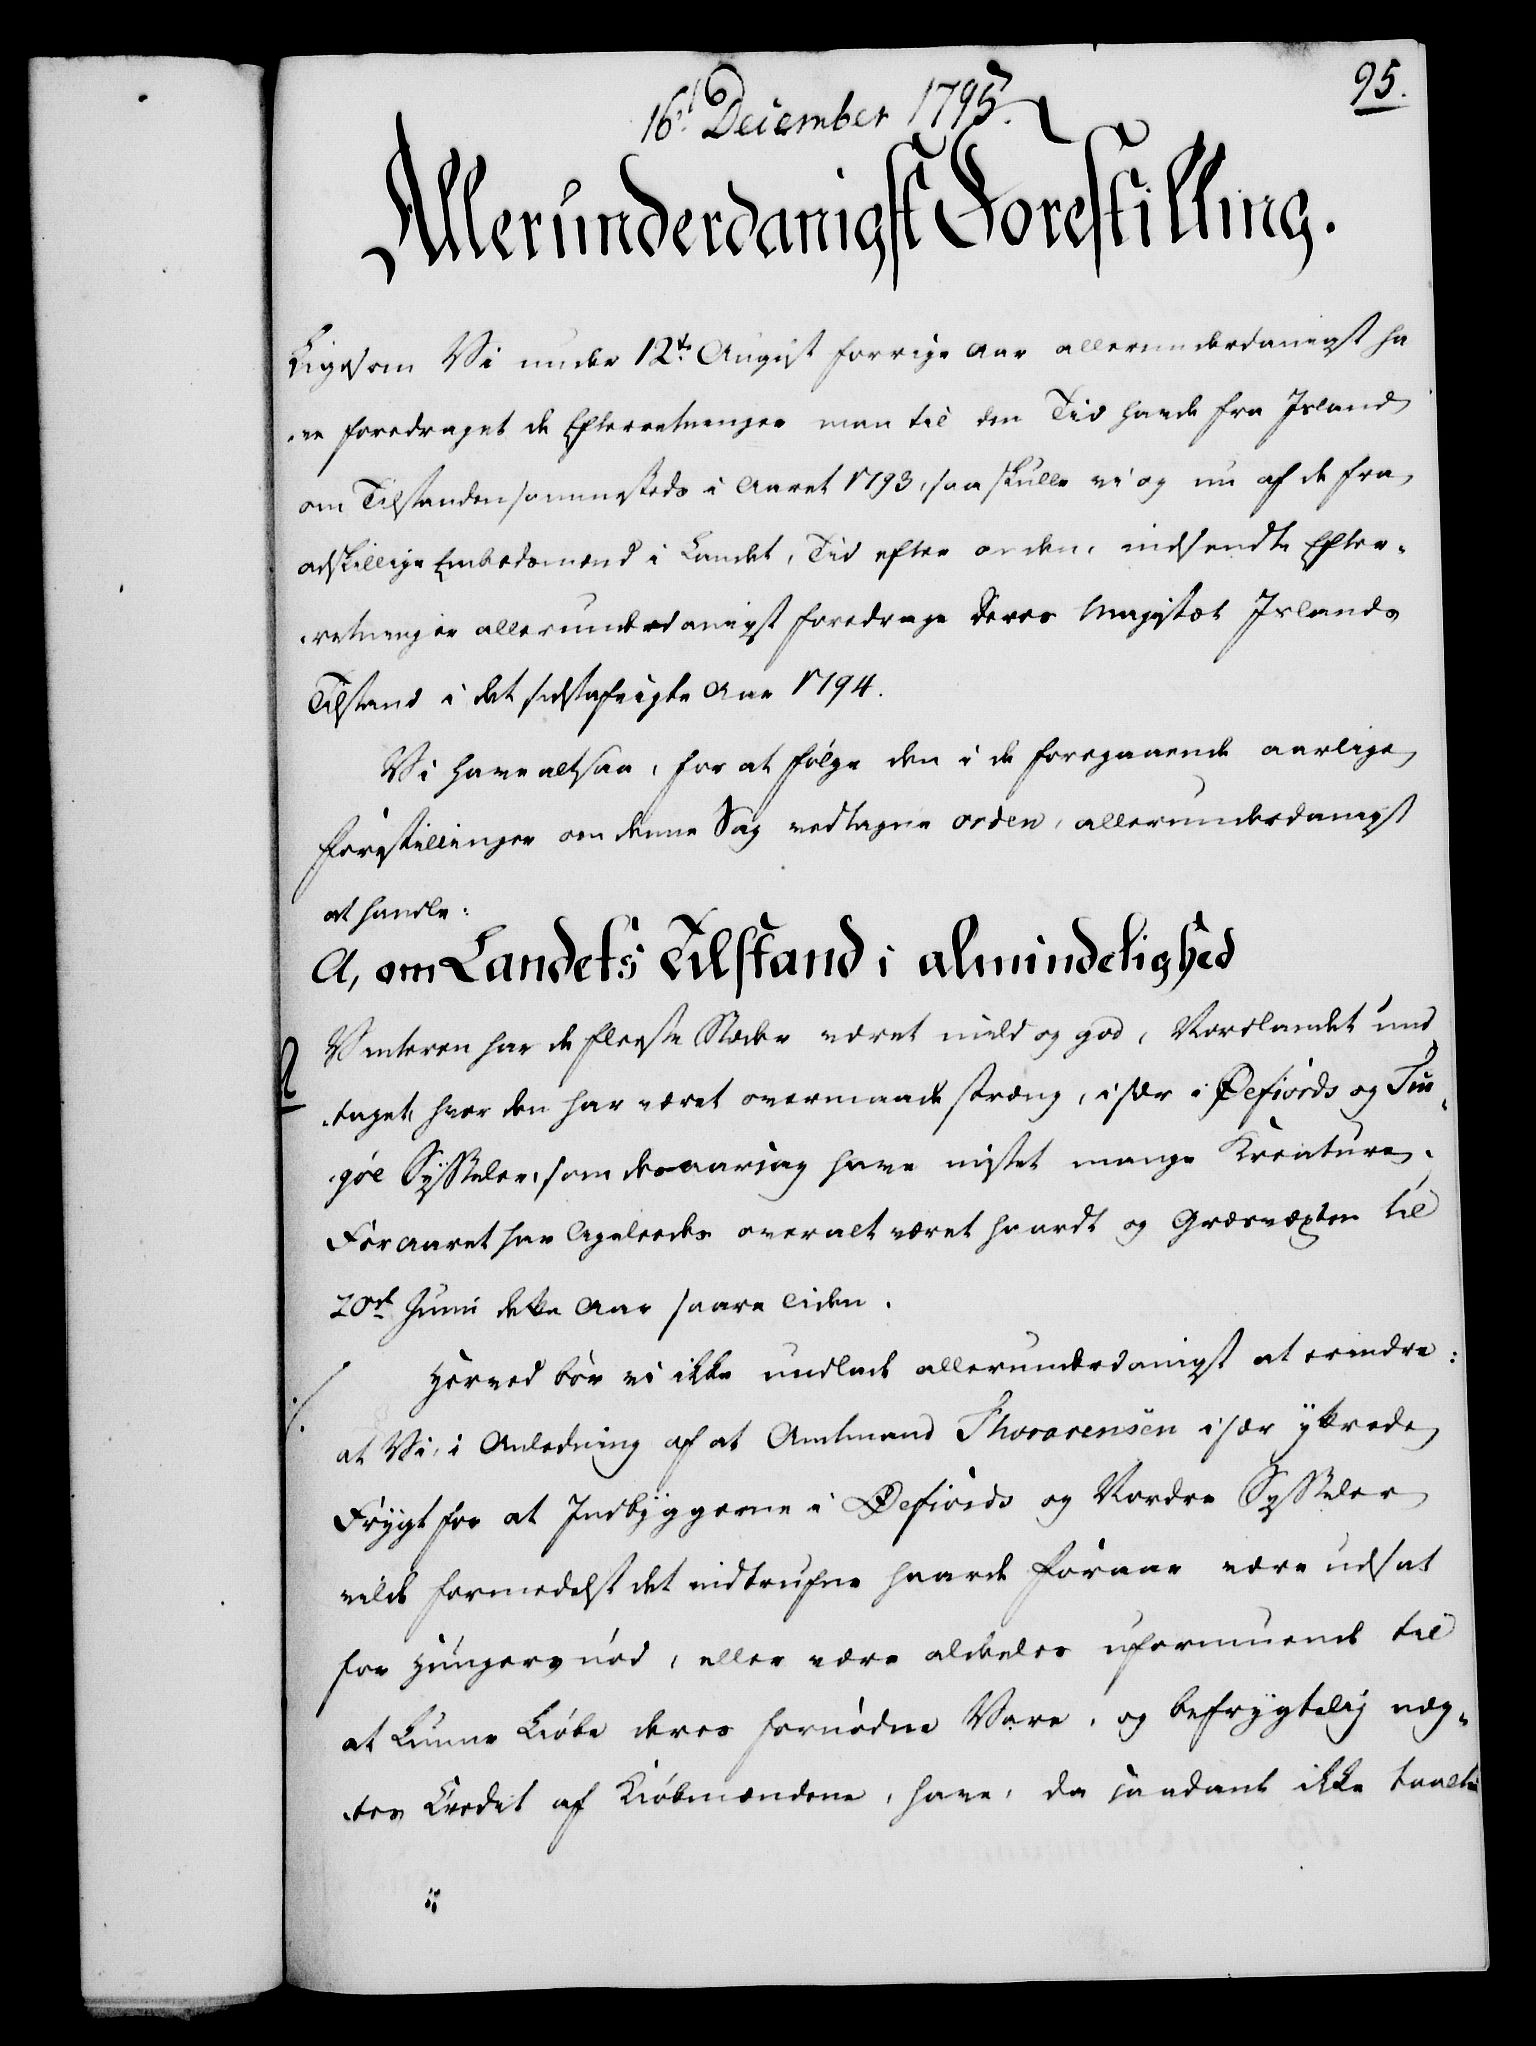 95.
16de December 1795.
Allerunderdanigst Forestilling.
Ligesom Vi under 12te August forrige Aar allerunderdanigst ha
„ve foredraget de Efterretninger man til den Tid havde fra Island
om Tilstanden sammesteds i Aaret 1793, saa skulle vi og nu af de fra
adskillige Embedsmænd i Landet, Tid efter anden, indsendte Efter„
„retninger allerunderdanigst foredrage Deres Majestæt Islands
Tilstand i det sidstafvigte Aar 1794.
Vi have altsaa, for at følge den i de foregaaende aarlige
Forestillinger om denne Sag vedtagne orden, allerunderdanigst
at handle:
A, om Landets Tilstand i almindelighed
Vinteren har de fleeste Stæder været mild og god, Nordlandet und
„taget, hvor den har været overmaade stræng, især i Øefiords og Tin
„gøe Sysseler, som desaarsag have mistet mange Kreature.
Foraaret har ligeleedes overalt været haardt og Græsvæxten til
20de Junii dette Aar saare liden.
Herved bør vi ikke undlade allerunderdanigst at erindre:
at Vi, i Anledning af at Amtmand Thorarensen især yttrede
Frygt for at Indbyggerne i Øefiords og Nordre Sysseler
vilde formedelst det indtrufne haarde Foraar være udsat
for Hungersnød, eller være aldeeles uformuende til
at kunne kiøbe deres fornødne Vare, og befrygtelig næg„
„tes Credit af Kiøbmændene, have, da saadant ikke taalte